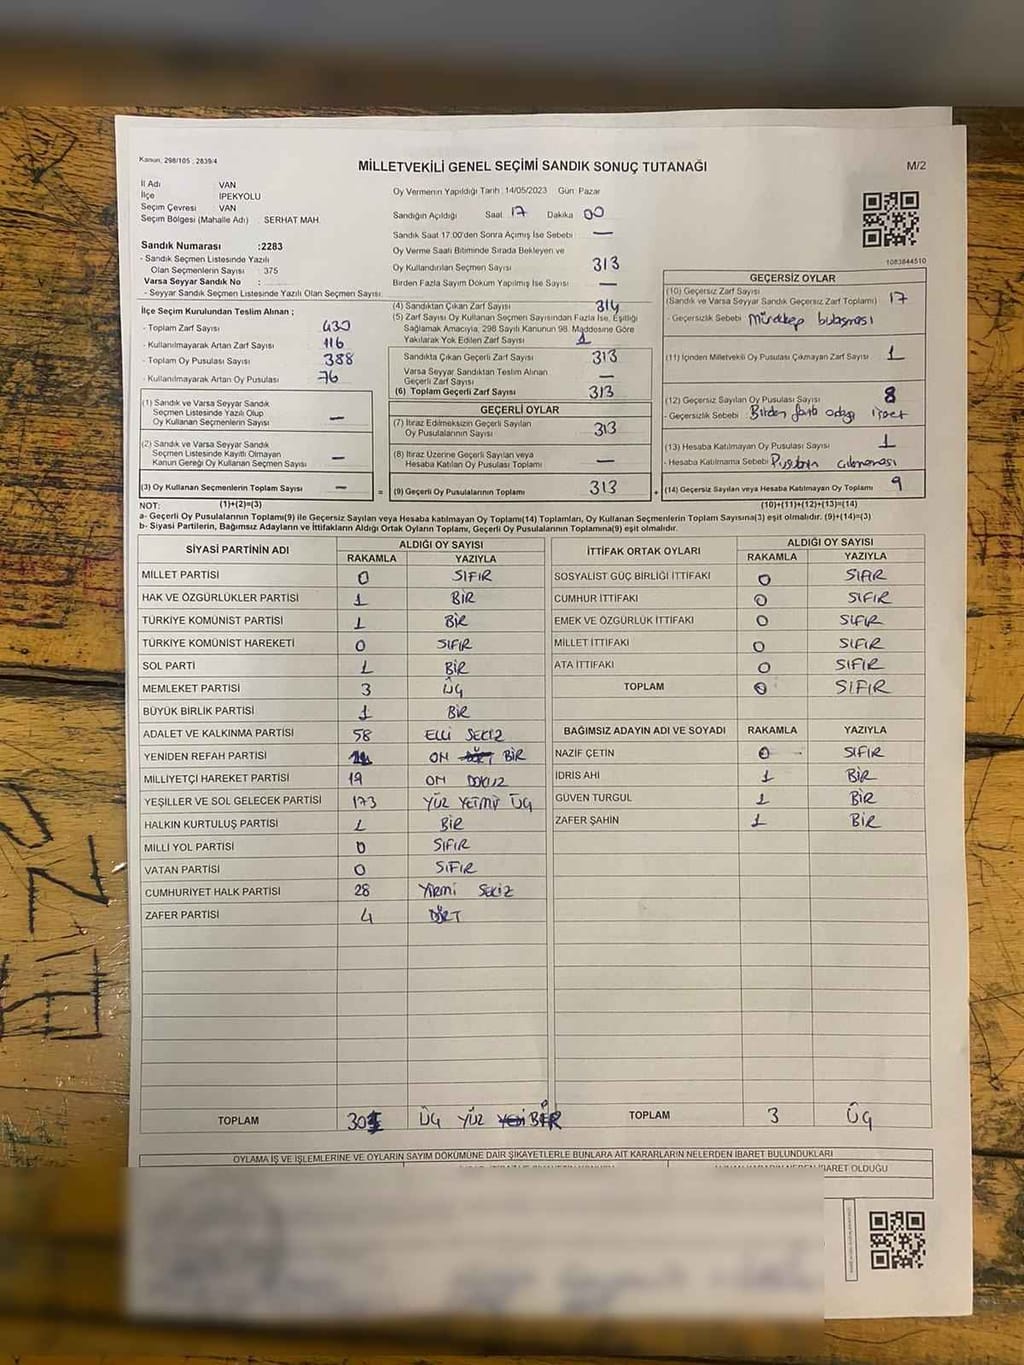 Kanun, 298/105 , 2839/4
MİLLETVEKİLİ GENEL SEÇİMİ SANDIK SONUÇ TUTANAĞI
M/2
İl Adı VAN
İlçe IPEKYOLU
Seçim Çevresi VAN
Seçim Bölgesi (Mahalle Adı) : SERHAT MAH.
Sandık Numarası :2283
- Sandık Seçmen Listesinde Yazılı
Olan Seçmenlerin Sayısı : 375
Varsa Seyyar Sandık No :
- Seyyar Sandık Seçmen Listesinde Yazılı Olan Seçmen Sayısı:
Oy Vermenin Yapıldığı Tarih :14/05/2023 Gün: Pazar
Sandığın Açıldığı Saat 17 Dakika 00
Sandık Saat 17.00'den Sonra Açımış İse Sebebi —
Oy Verme Saati Bitiminde Sırada Bekleyen ve
Oy Kullandırılan Seçmen Sayısı 313
Birden Fazla Sayım Döküm Yapılmış İse Sayısı —
1083844510
İlçe Seçim Kurulundan Teslim Alınan ;
- Toplam Zarf Sayısı 430
- Kullanılmayarak Artan Zarf Sayısı 116
- Toplam Oy Pusulası Sayısı 388
- Kullanılmayarak Artan Oy Pusulası 76
(1) Sandık ve Varsa Seyyar Sandık
Seçmen Listesinde Yazılı Olup
Oy Kullanan Seçmenlerin Sayısı —
(2) Sandık ve Varsa Seyyar Sandık
Seçmen Listesinde Kayıtlı Olmayan
Kanun Gereği Oy Kullanan Seçmen Sayısı —
(3) Oy Kullanan Seçmenlerin Toplam Sayısı —
(4) Sandıktan Çıkan Zarf Sayısı 314
(5) Zarf Sayısı Oy Kullanan Seçmen Sayısından Fazla İse, Eşitliği
Sağlamak Amacıyla, 298 Sayılı Kanunun 98. Maddesine Göre
Yakılarak Yok Edilen Zarf Sayısı 1
Sandıkta Çıkan Geçerli Zarf Sayısı 313
Varsa Seyyar Sandıktan Teslim Alınan
Geçerli Zarf Sayısı —
(6) Toplam Geçerli Zarf Sayısı 313
GEÇERLİ OYLAR
(7) İtiraz Edilmeksizin Geçerli Sayılan
Oy Pusulalarının Sayısı 313
(8) İtiraz Üzerine Geçerli Sayılan veya
Hesaba Katılan Oy Pusulası Toplamı —
= (9) Geçerli Oy Pusulalarının Toplamı 313 +
GEÇERSİZ OYLAR
(10) Geçersiz Zarf Sayısı
(Sandık ve Varsa Seyyar Sandık Geçersiz Zarf Toplamı) 17
- Geçersizlik Sebebi Mürekkep bulaşması
(11) İçinden Milletvekili Oy Pusulası Çıkmayan Zarf Sayısı 1
(12) Geçersiz Sayılan Oy Pusulası Sayısı 8
- Geçersizlik Sebebi Birden
(13) Hesaba Katılmayan Oy Pusulası Sayısı 1
- Hesaba Katılmama Sebebi
(14) Geçersiz Sayılan veya Hesaba Katılmayan Oy Toplamı 9
NOT: (1)+(2)=(3) (10)+(11)+(12)+(13)=(14)
a- Geçerli Oy Pusulalarının Toplamı(9) ile Geçersiz Sayılan veya Hesaba katılmayan Oy Toplamı(14) Toplamları, Oy Kullanan Seçmenlerin Toplam Sayısına(3) eşit olmalıdır. (9)+(14)=(3)
b- Siyasi Partilerin, Bağımsız Adayların ve İttifakların Aldığı Ortak Oyların Toplamı, Geçerli Oy Pusulalarının Toplamına(9) eşit olmalıdır.
SİYASİ PARTİNİN ADI ALDIĞI OY SAYISI
RAKAMLA YAZIYLA
MİLLET PARTİSİ 0 SIFIR
HAK VE ÖZGÜRLÜKLER PARTİSİ 1 BİR
TÜRKİYE KOMÜNİST PARTİSİ 1 BİR
TÜRKİYE KOMÜNİST HAREKETİ 0 SIFIR
SOL PARTİ 1 BİR
MEMLEKET PARTİSİ 3 ÜÇ
BÜYÜK BİRLİK PARTİSİ 1 BİR
ADALET VE KALKINMA PARTİSİ 58 ELLİ SEKİZ
YENİDEN REFAH PARTİSİ 11 ON DÖRT BİR
MİLLİYETÇİ HAREKET PARTİSİ 19 ON DOKUZ
YEŞİLLER VE SOL GELECEK PARTİSİ 173 YÜZ YETMİŞ ÜÇ
HALKIN KURTULUŞ PARTİSİ 1 BİR
MİLLİ YOL PARTİSİ 0 SIFIR
VATAN PARTİSİ 0 SIFIR
CUMHURİYET HALK PARTİSİ 28 YİRMİ SEKİZ
ZAFER PARTİSİ 4 DÖRT
TOPLAM 301 ÜÇ YÜZ BİR
İTTİFAK ORTAK OYLARI ALDIĞI OY SAYISI
RAKAMLA YAZIYLA
SOSYALİST GÜÇ BİRLİĞİ İTTİFAKI 0 SIFIR
CUMHUR İTTİFAKI 0 SIFIR
EMEK VE ÖZGÜRLÜK İTTİFAKI 0 SIFIR
MİLLET İTTİFAKI 0 SIFIR
ATA İTTİFAKI 0 SIFIR
TOPLAM 0 SIFIR
BAĞIMSIZ ADAYIN ADI VE SOYADI RAKAMLA YAZIYLA
NAZİF ÇETİN 0 SIFIR
İDRİS AHİ 1 BİR
GÜVEN TURGUL 1 BİR
ZAFER ŞAHİN 1 BİR
TOPLAM 3 ÜÇ
OYLAMA İŞ VE İŞLEMLERİNE VE OYLARIN SAYIM DÖKÜMÜNE DAİR ŞİKAYETLERLE BUNLARA AİT KARARLARIN NELERDEN İBARET BULUNDUKLARI
İBARET OLDUĞU